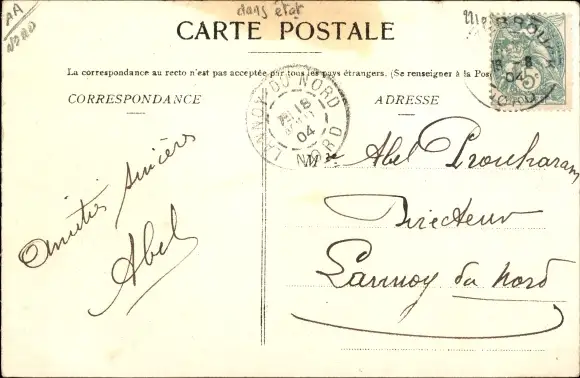 AA
NORD
dans état
CARTE POSTALE
La correspondance au recto n'est pas acceptée par tous les pays étrangers. (Se renseigner à la Pos
CORRESPONDANCE
ADRESSE
LANNOY-DU-NORD
18
04
NORD
04
NORD
5c
Amitiés sincères
Abel
Mr Abel Prouharam
Directeur
Lannoy du Nord